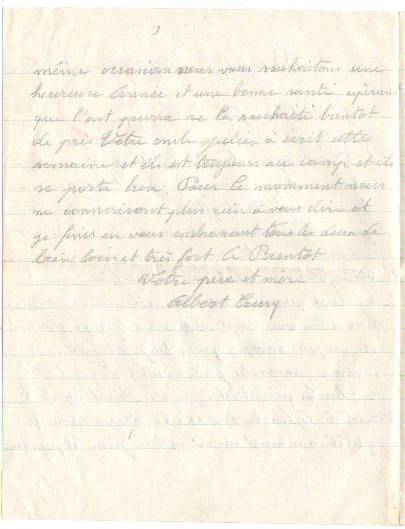 3
même occasion nous vous souhaitons une
heureuse année et une bonne santé
que l'ont pourra se la bientot
de près Votre oncle à écrit cette
semaine et ils est toujours au camp et ils
se porte bien Pour le momment nous
ne plus rien à vous dire et
je finis en vous tous les deux de
bien loin et très fort A Bientot
Votre père et mère
Albert